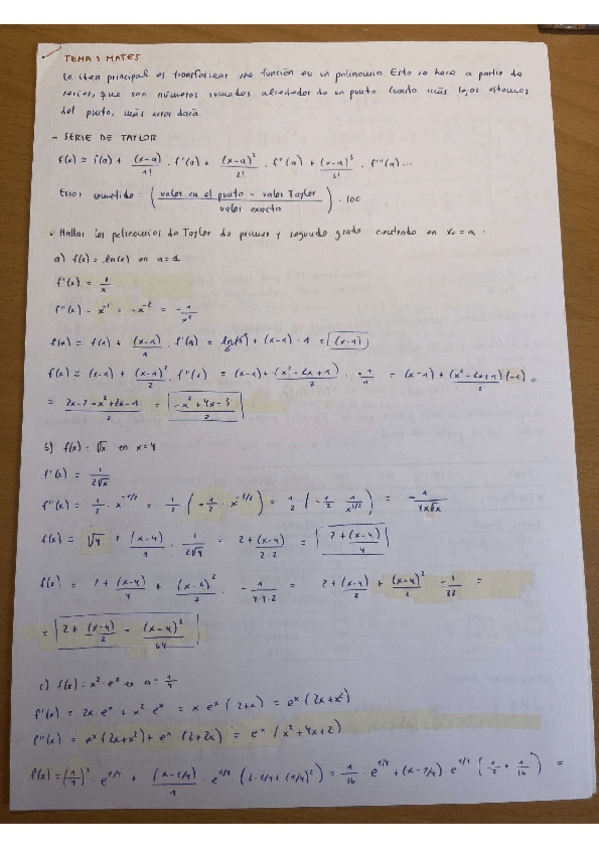 TEMA 5 MATES
La idea principal es transformar una función en un polinomio. Esto se hace a partir de
series, que son números sumados alrededor de un punto. Cuanto más lejos estemos
del punto, más error dará.
- SERIE DE TAYLOR
f(x) ≈ f(a) + (x-a)/1! · f'(a) + (x-a)²/2! · f''(a) + (x-a)³/3! · f'''(a) ...
Error cometido: ( (valor en el punto - valor Taylor) / valor exacto ) · 100
· Hallar los polinomios de Taylor de primer y segundo grado centrado en x₀ = a.
a) f(x) = ln(x) en a = 1
f'(x) = 1/x
f''(x) = x⁻¹ = -x⁻² = -1/x²
f(x) ≈ f(x) + (x-1)/1 · f'(1) = ln(1) + (x-1) · 1 = (x-1)
f(x) ≈ (x-1) + (x-1)²/2 · f''(1) = (x-1) + (x²-2x+1)/2 · -1/1 = (x-1) + (x²-2x+1)(-1)/2 =
= (2x-2-x²+2x-1)/2 = (-x²+4x-3)/2
b) f(x) = √x en x = 4
f'(x) = 1/(2√x)
f''(x) = 1/2 · x^(-1/2) = 1/2 (-1/2 · x^(-3/2)) = 1/2 · (-1/2 · 1/x^(3/2)) = -1/(4x√x)
f(x) = √4 + (x-4)/1 · 1/(2√4) = 2 + (x-4)/(2·2) = 2 + (x-4)/4
f(x) = 2 + (x-4)/4 + (x-4)²/2 · -1/(4·4·2) = 2 + (x-4)/2 + (x-4)²/2 · -1/32 =
= 2 + (x-4)/2 - (x-4)²/64
c) f(x) = x² · eˣ en a = 1/4
f'(x) = 2x · eˣ + x² · eˣ = x · eˣ (2+x) = eˣ (2x+x²)
f''(x) = eˣ (2x+x²) + eˣ (2+2x) = eˣ (x²+4x+2)
f(x) = (1/4)² · e^(1/4) + (x-1/4)/1 · e^(1/4) · (2·1/4 + (1/4)²) = 1/16 · e^(1/4) + (x-1/4) · e^(1/4) (1/2 + 1/16) =